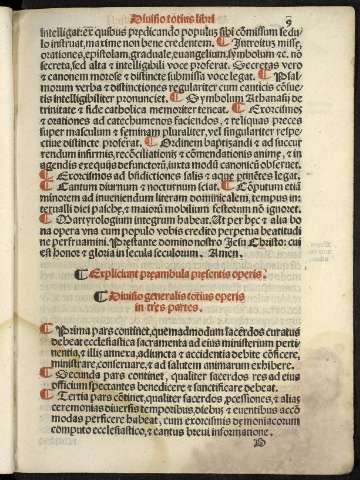 Diuisio totius libri
9
intelligat: ex quibus predicando populũ sibi cõmissum sedu
lo instruat, maxime non bene credentem. ¶ Introitus misse,
orationes, epistolam, graduale, euangelium, symbolum ⁊c. nõ
secreta, sed alta ⁊ intelligibili voce proferat. Secretas vero
⁊ canonem morose ⁊ distincte submissa voce legat. ¶ Psal
morum verba ⁊ distinctiones regulariter cum canticis cõsue
tis intelligibiliter pronunciet. ¶ Symbolum Athanasij de
trinitate ⁊ fide catholica memoriter teneat. ¶ Exorcismos
⁊ orationes ad catechumenos faciendos, ⁊ reliquas preces
super masculum ⁊ feminam pluraliter, vel singulariter respe
ctiue distincte proferat. ¶ Ordinem baptizandi ⁊ ad succur
rendum infirmis, recõciliationis ⁊ cõmendationis anime, ⁊ in
agendis exequijs defunctorũ, iuxta modũ canonicũ obseruet.
¶ Exorcismos ad bñdictiones salis ⁊ aque ptinẽtes legat.
¶ Cantum diurnum ⁊ nocturnum sciat. ¶ Cõputum etiã
minorem ad inueniendum literam dominicalem, tempus in
terualli diei pasche, ⁊ maiorũ mobilium festorum nõ ignoret.
¶ Martyrologium integrum habeat. Ut per hec ⁊ alia bo
na opera vna cum populo vobis credito perpetua beatitudi
ne perfruamini. Prestante domino nostro Jesu Christo: cui
est honor ⁊ gloria in secula seculorum. Amen.
¶ Expliciunt preambula presentis operis.
¶ Diuisio generalis totius operis
in tres partes.
¶ Prima pars continet, quemadmodum sacerdos curatus
debeat ecclesiastica sacramenta ad eius ministerium perti
nentia, ⁊ illis annexa, adiuncta ⁊ accidentia debite cõficere,
ministrare, conseruare, ⁊ ad salutem animarum exhibere.
¶ Secunda pars continet, qualiter sacerdos res ad eius
officium spectantes benedicere ⁊ sanctificare debeat.
¶ Tertia pars cõtinet, qualiter sacerdos pcessiones, ⁊ alias
ceremonias diuersis temporibus, diebus ⁊ euentibus accõ
modas perficere habeat, cum exorcismis demoniacorum
computo ecclesiastico, ⁊ cantus breui informatione.